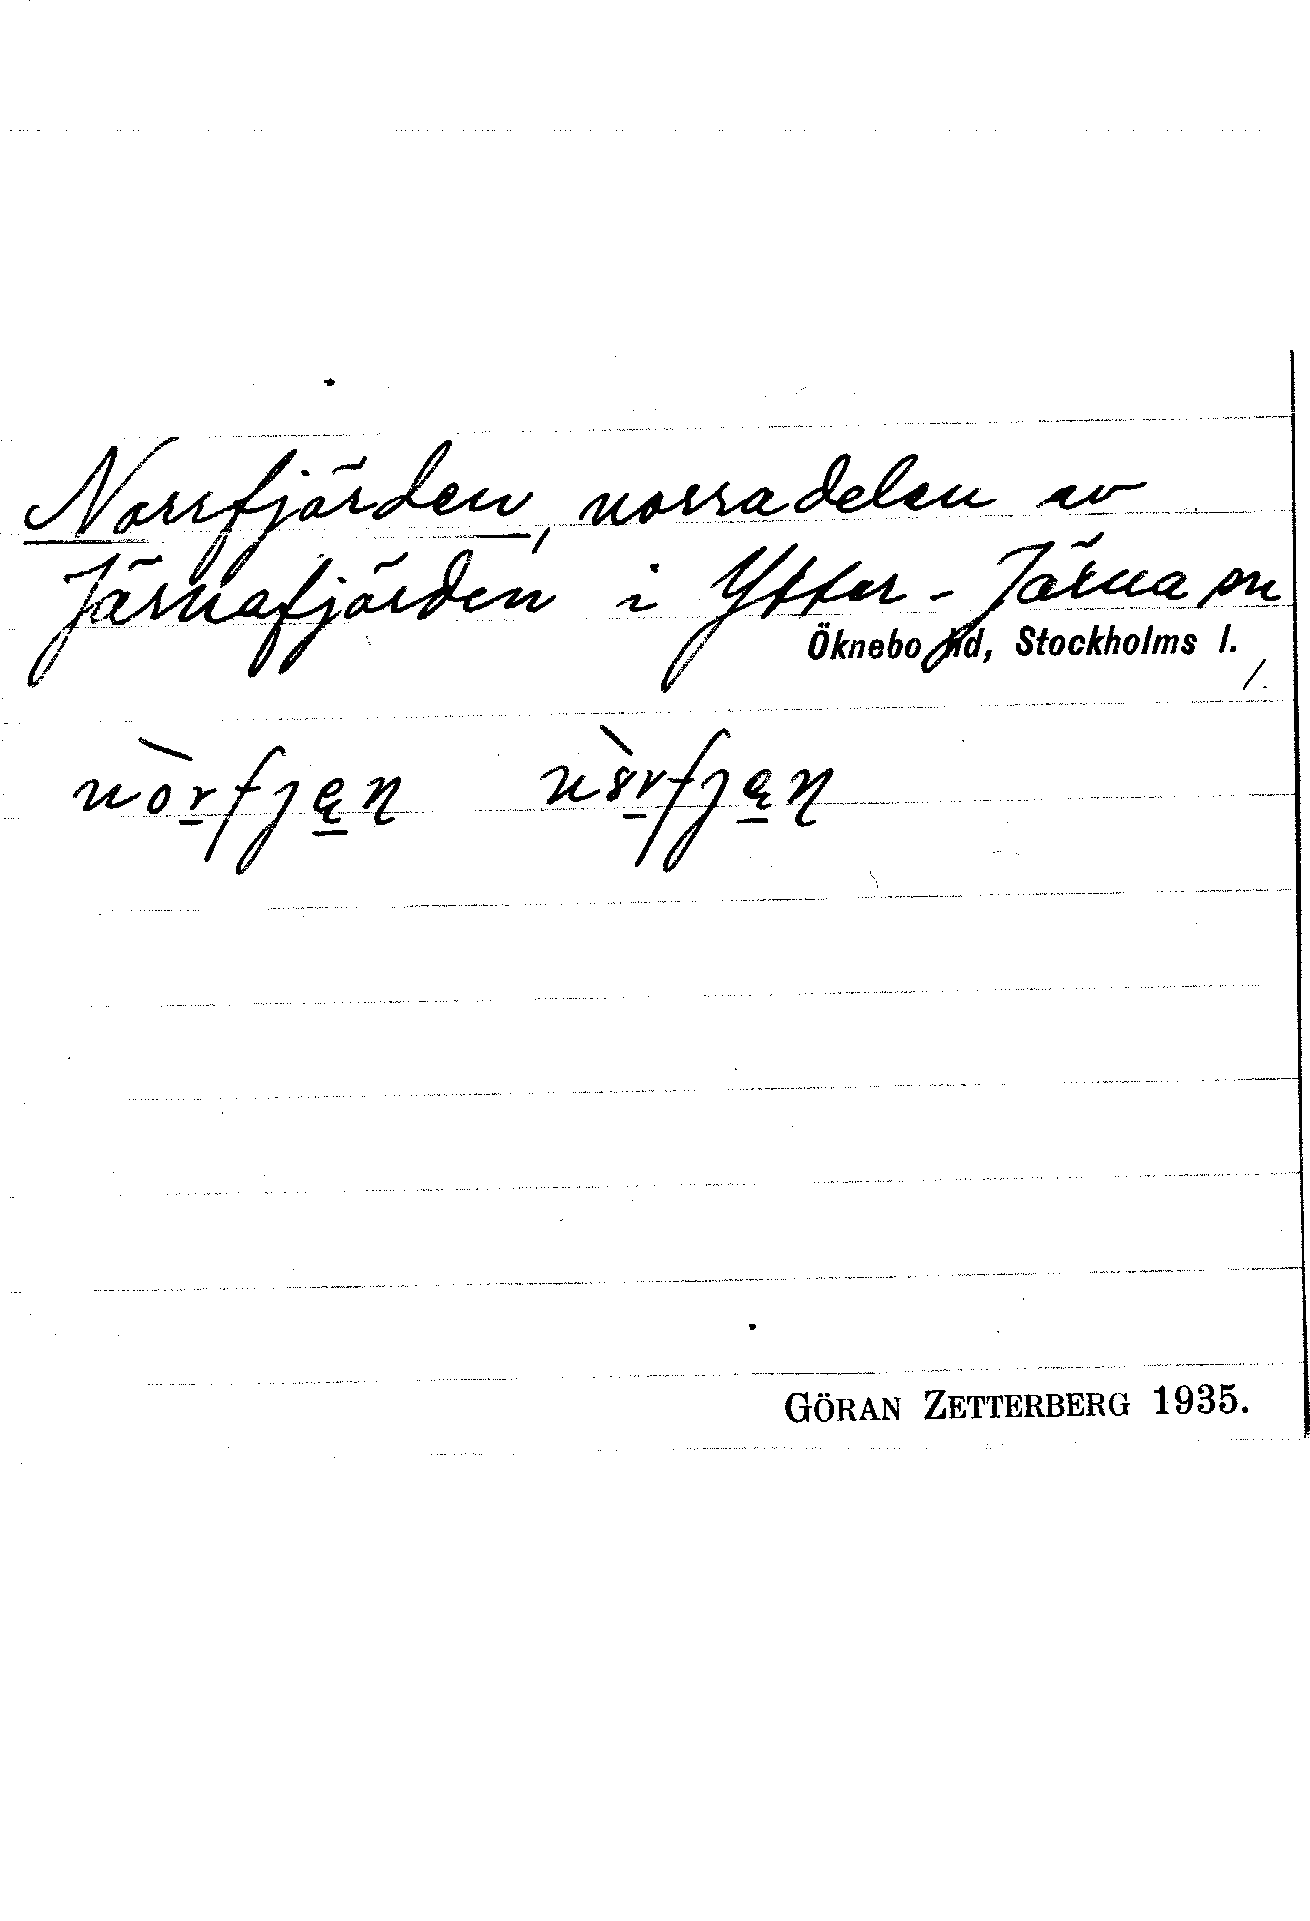 Norrfjärden, norra delen av
Järnafjärden i Ytter-Järna sn
Öknebo hd, Stockholms l.
GÖRAN ZETTERBERG 1935.